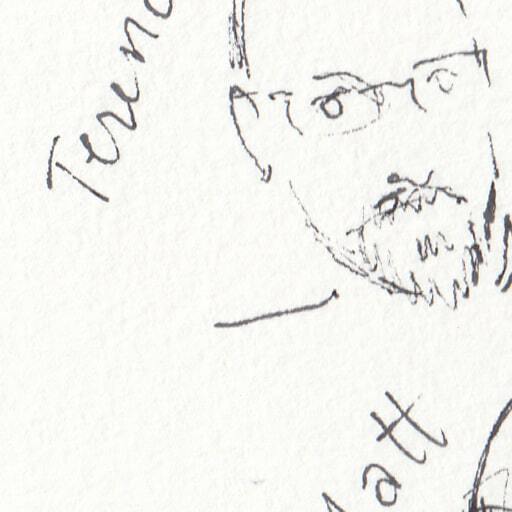 Terenc
att